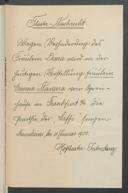 Theater-Nachricht
Wegen Verhinderung des
Fräulein Dona wird in der
heutigen Vorstellung Fräulein
Emma vom Opern-
haus in Frankfurt a. M. die
Parthie der singen
Mannheim, den Januar
Hoftheater-Intendanz